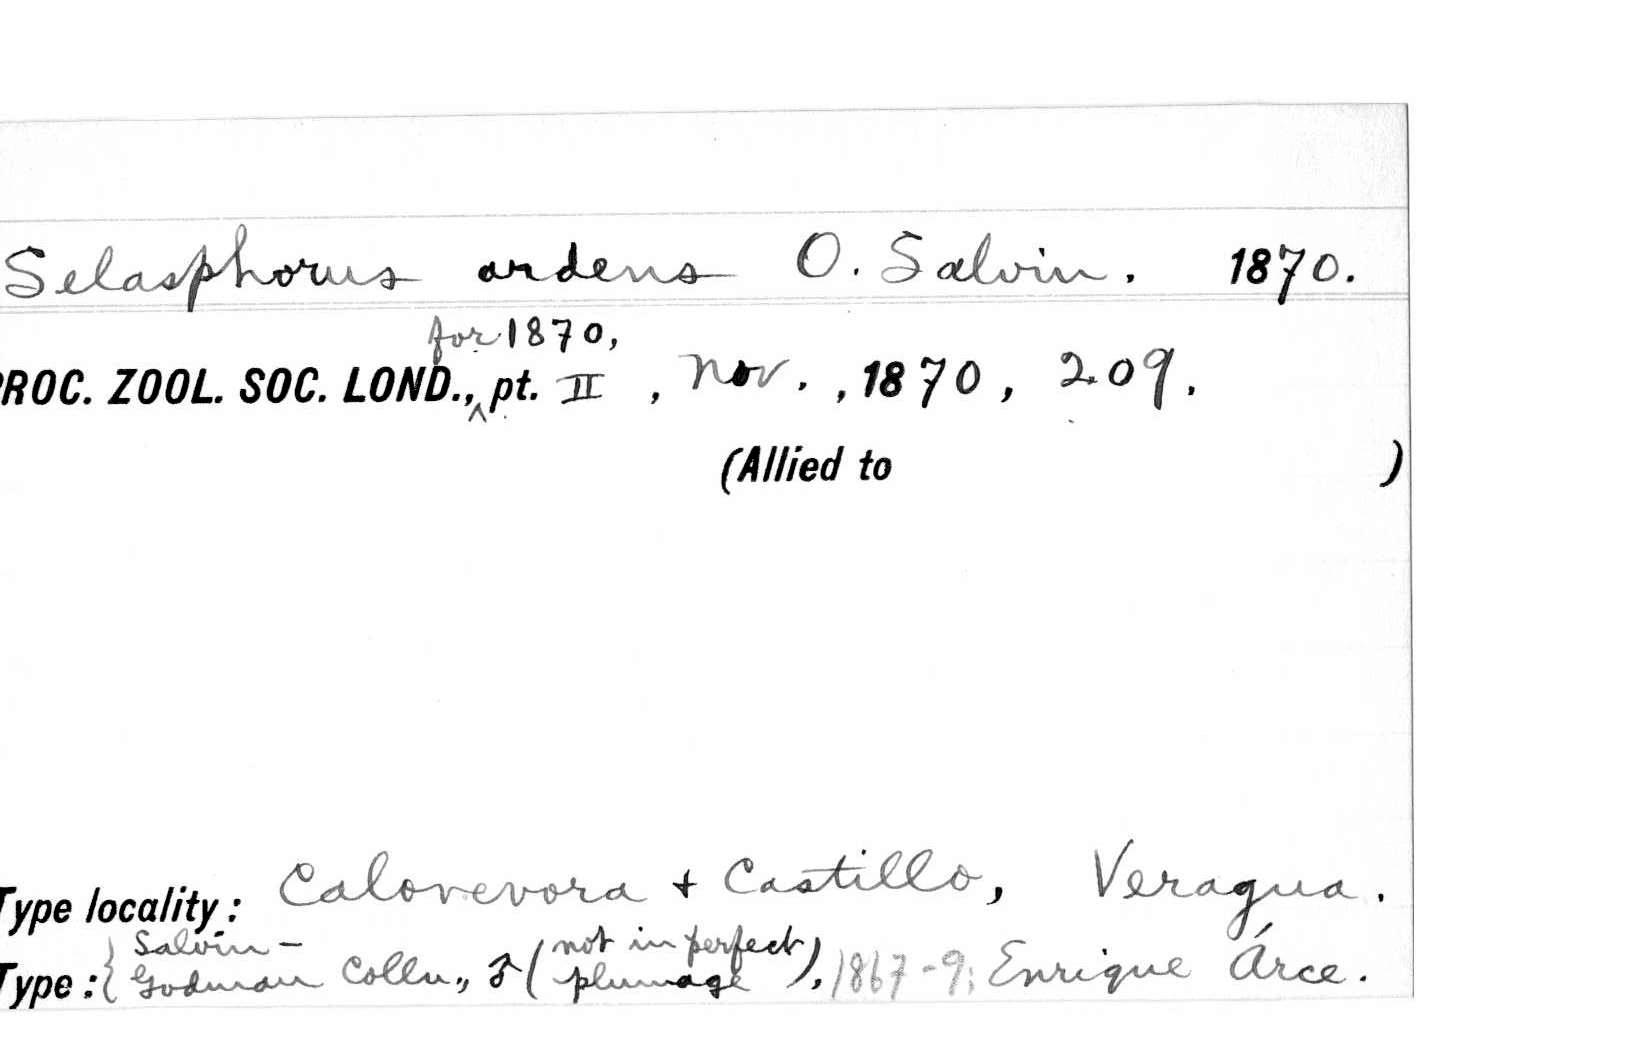 Selasphorus ardens O. Salvin. 1870.
for 1870,
PROC. ZOOL. SOC. LOND., ^ pt. II , Nov. , 1870 , 209 .
(Allied to )
Type locality : Calovevora + Castillo, Veragua .
Salvin – (not in perfect
Type : { Godman Colln., ♂ plumage ), 1867-9; Enrique Árce .